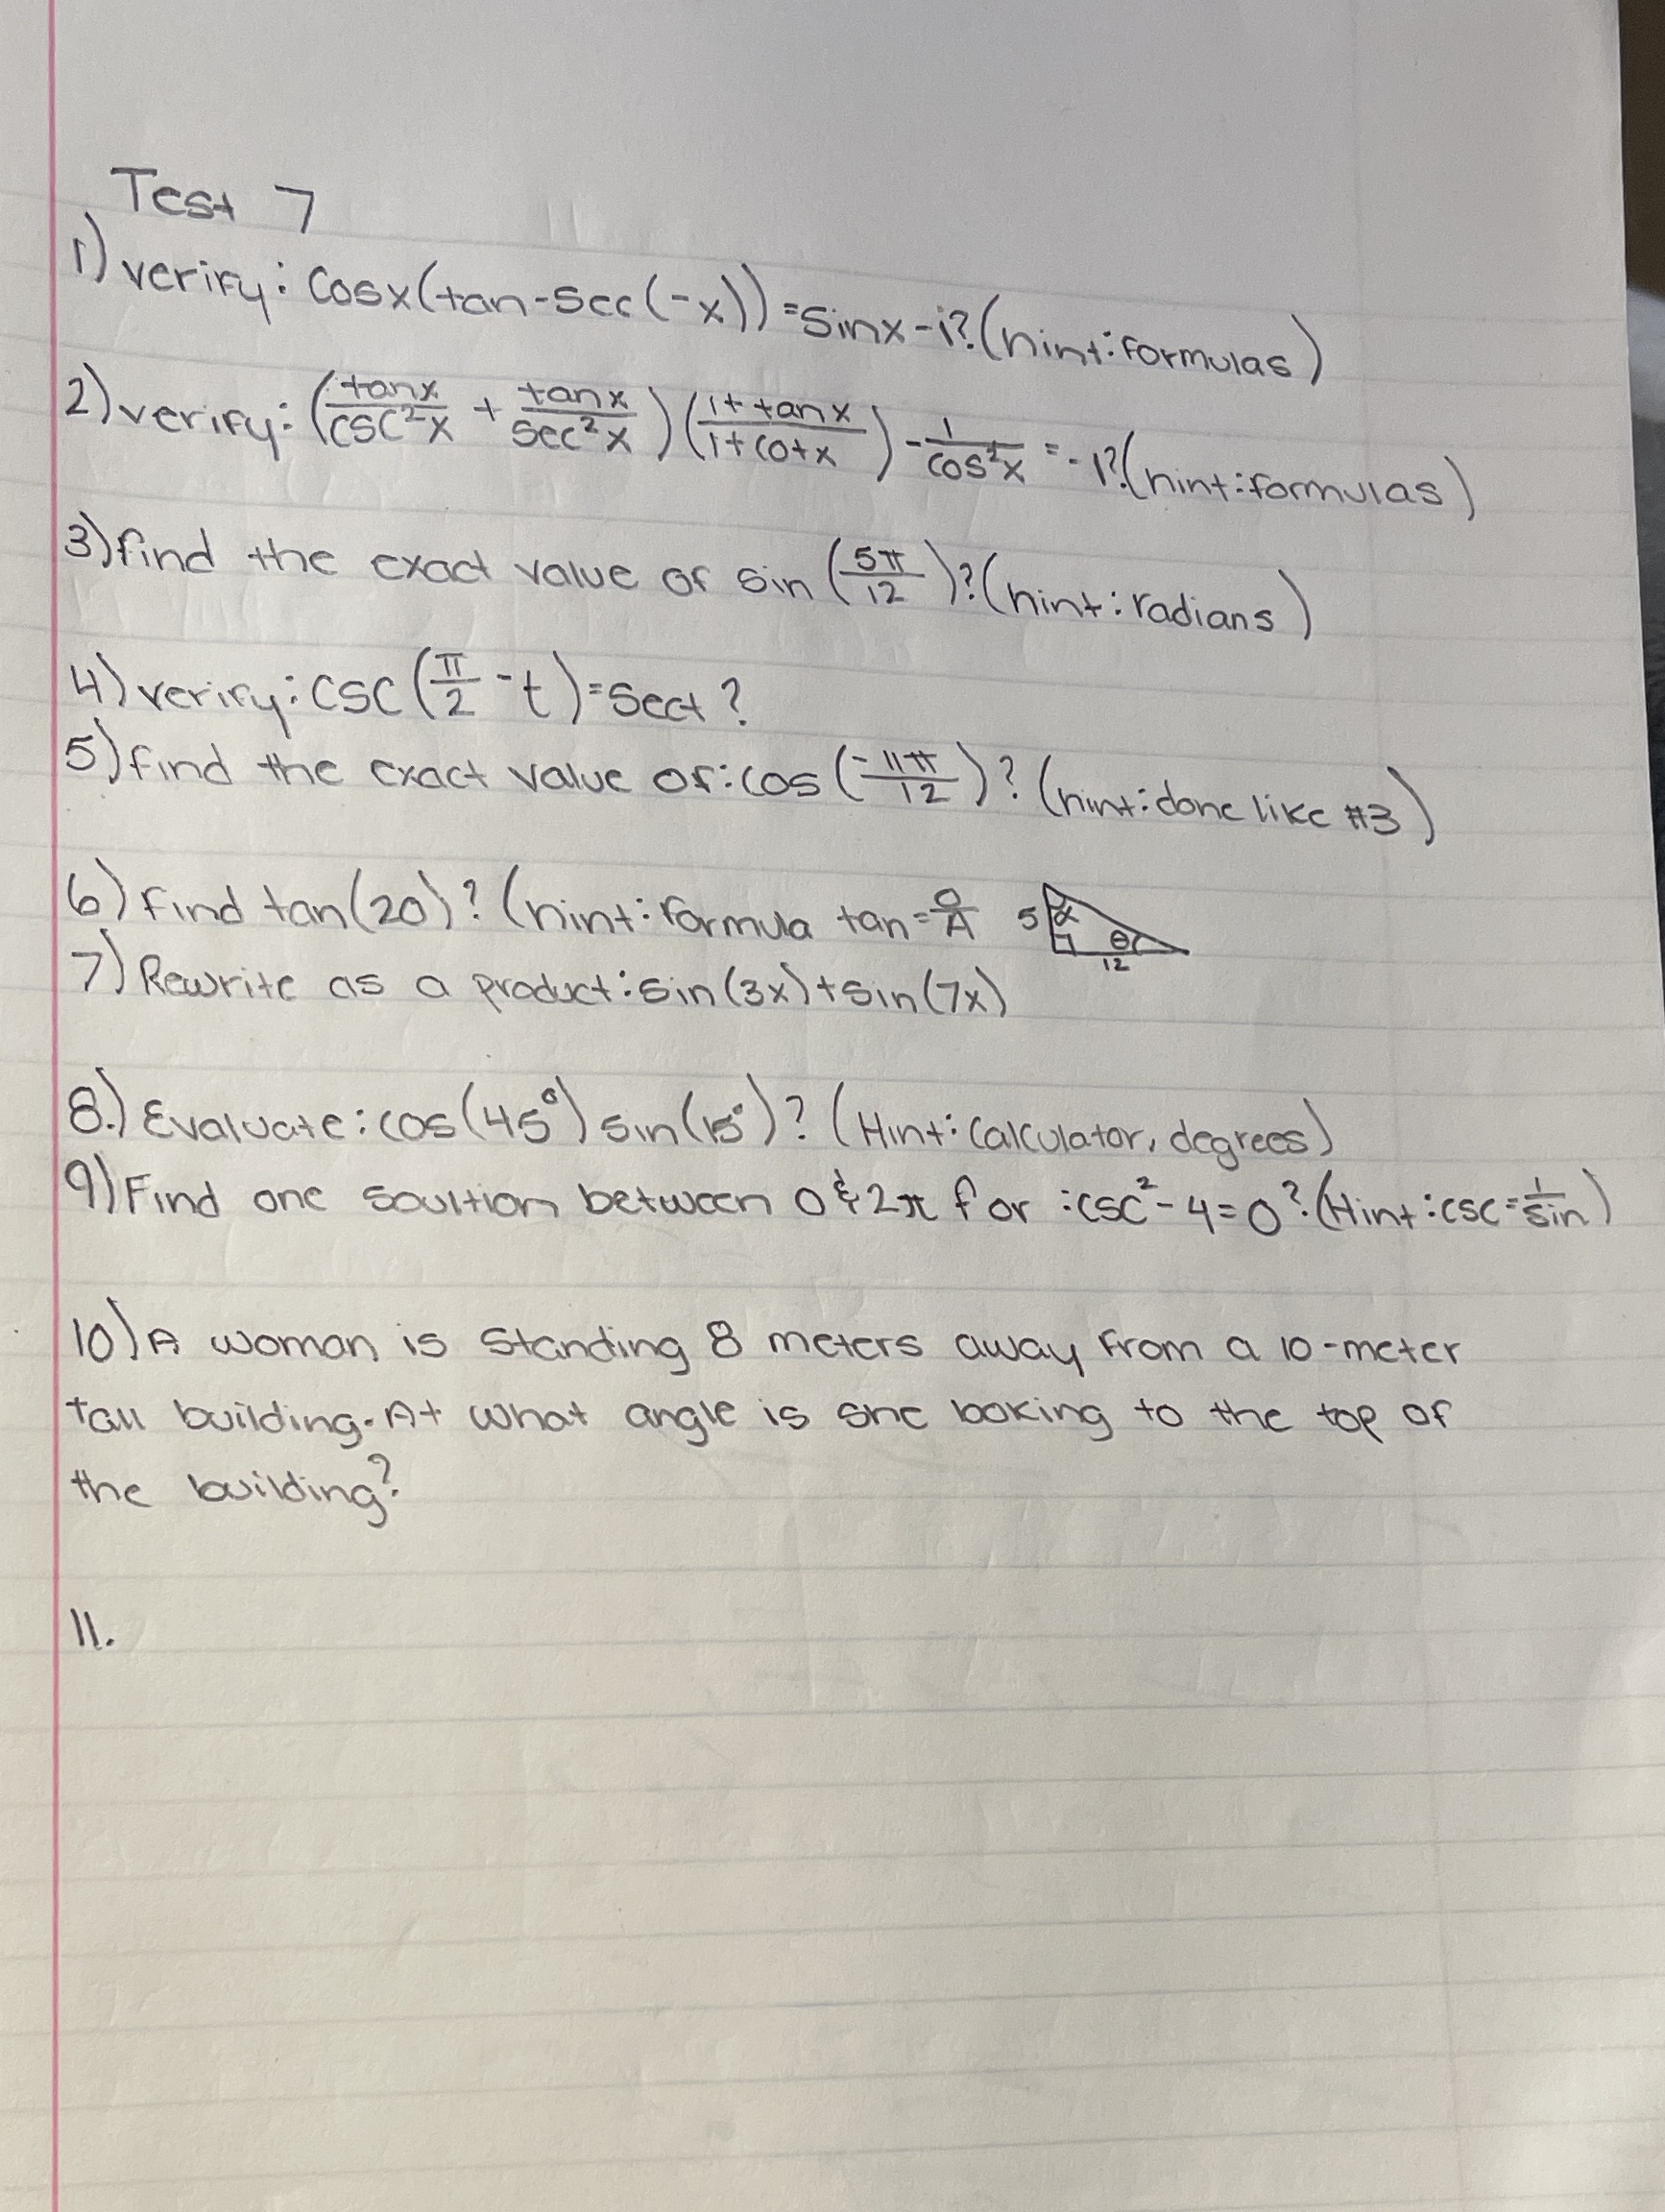 Test 7
1) verify: Cosx(tan-sec(-x))=sinx-1?(hint:formulas)
2) verify: (tanx/csc²x + tanx/sec²x)(1+tanx/1+cotx) - 1/cos²x = -1?(hint:formulas)
3) find the exact value of sin (5π/12)?(hint:radians)
4) verify: csc(π/2 - t)=sect?
5) find the exact value of: cos (-11π/12)? (hint:done like #3)
6) find tan(20)? (hint: formula tan=O/A 5 α θ 12
7) Rewrite as a product: sin(3x)+sin(7x)
8.) Evaluate: cos(45°) sin(15°)? (Hint: Calculator, degrees)
9) Find one soultion between 0 & 2π for :csc²-4=0?(Hint:csc=1/sin)
10) A woman is standing 8 meters away from a 10-meter
tall building. At what angle is she looking to the top of
the building?
11.